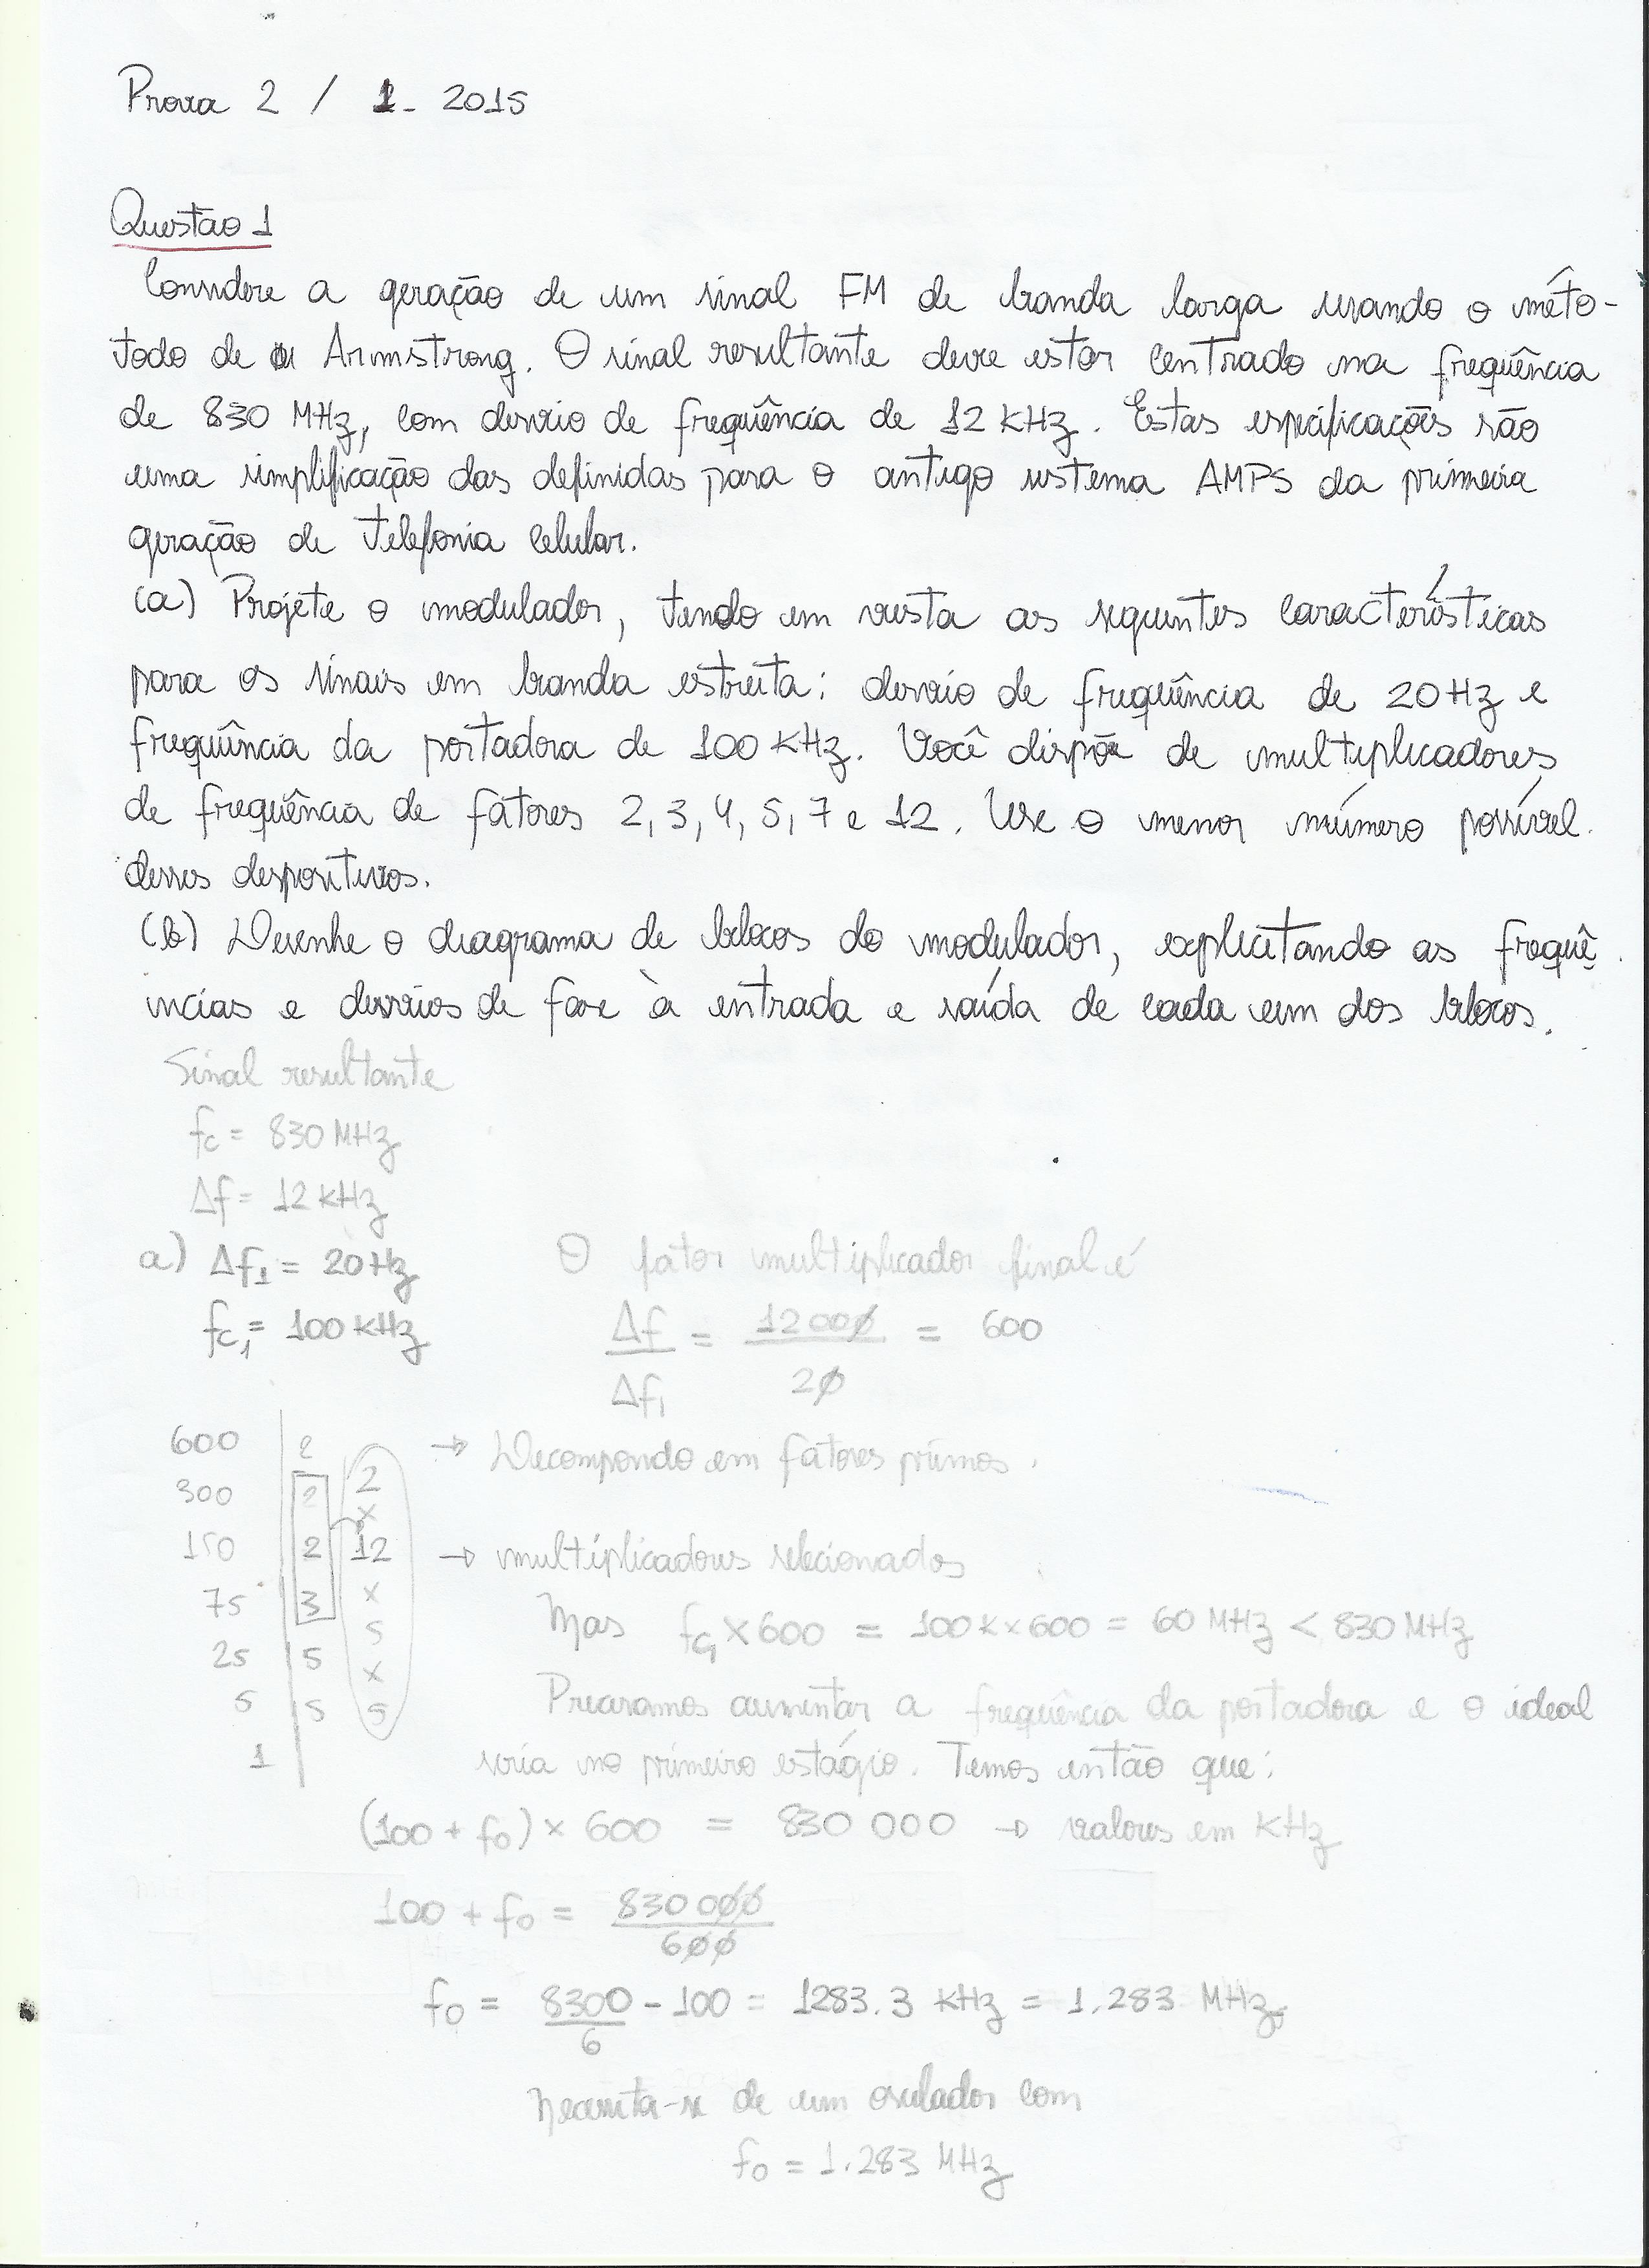 Prova 2 / 1 - 2015
Questão 1
Considere a geração de um sinal FM de banda larga usando o méto-
todo de Armstrong. O sinal resultante deve estar centrado na freqüência
de 830 MHz, com desvio de freqüência de 12 KHz. Estas especificações são
uma simplificação das definidas para o antigo sistema AMPS da primeira
geração de telefonia celular.
(a) Projete o modulador, tendo em vista as seguintes características
para os sinais em banda estreita: desvio de freqüência de 20 Hz e
freqüência da portadora de 100 KHz. Você dispõe de multiplicadores
de freqüência de fatores 2, 3, 4, 5, 7 e 12. Use o menor número possível
desses dispositivos.
(b) Desenhe o diagrama de blocos do modulador, explicitando as freqüê
ncias e desvios de fase à entrada e saída de cada um dos blocos.
Sinal resultante
fc = 830 MHz
Δf = 12 KHz
a) Δf1 = 20 Hz O fator multiplicador final é
fc1 = 100 KHz Δf/Δf1 = 12000/20 = 600
600 2 → Decompondo em fatores primos.
300 2 2
x
150 2 12 → multiplicadores selecionados
75 3 x
Mas fc1 x 600 = 100K x 600 = 60 MHz < 830 MHz
5
25 5 x
5 5 5 Precisamos aumentar a freqüência da portadora e o ideal
1 seria no primeiro estágio. Temos então que:
(100 + f0) x 600 = 830 000 → valores em KHz
100 + f0 = 830 000/600
f0 = 8300/6 - 100 = 1283.3 KHz = 1.283 MHz
Necessita-se de um oscilador com
f0 = 1.283 MHz